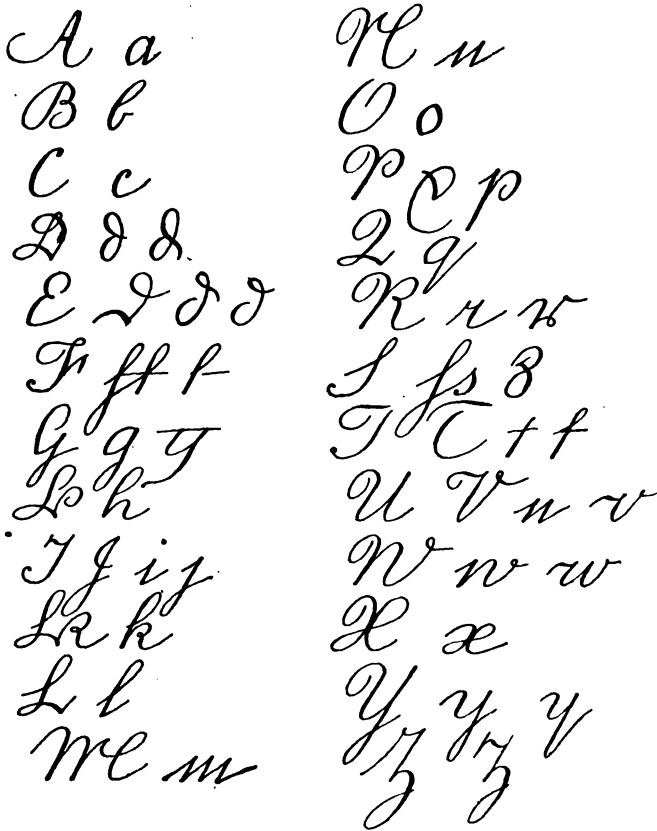 A a
B b
C c
D d d
E D d d
F ff f
G g g
H h
I J i j
K k
L l
M m
N n
O o
P P p
Q q
R r r
S ſ s s
T T t t
U V u v
W w w
X x
Y y y
Z z